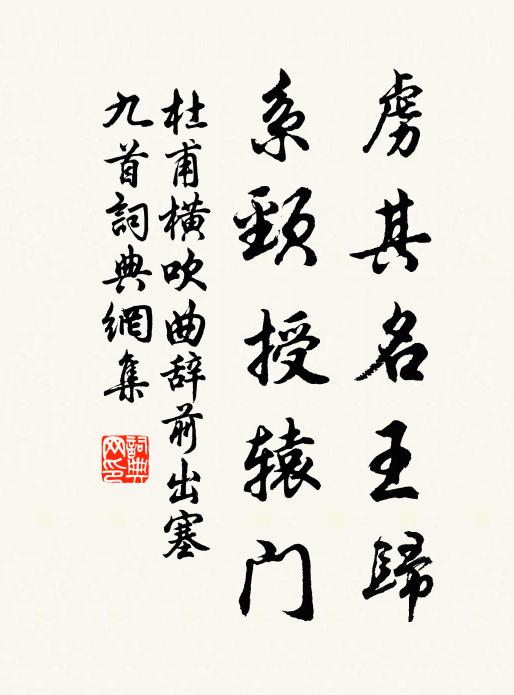 虏其名王歸
系頸授辕门
杜甫横吹曲辞前出塞
九首詞典網集
詞典
网印